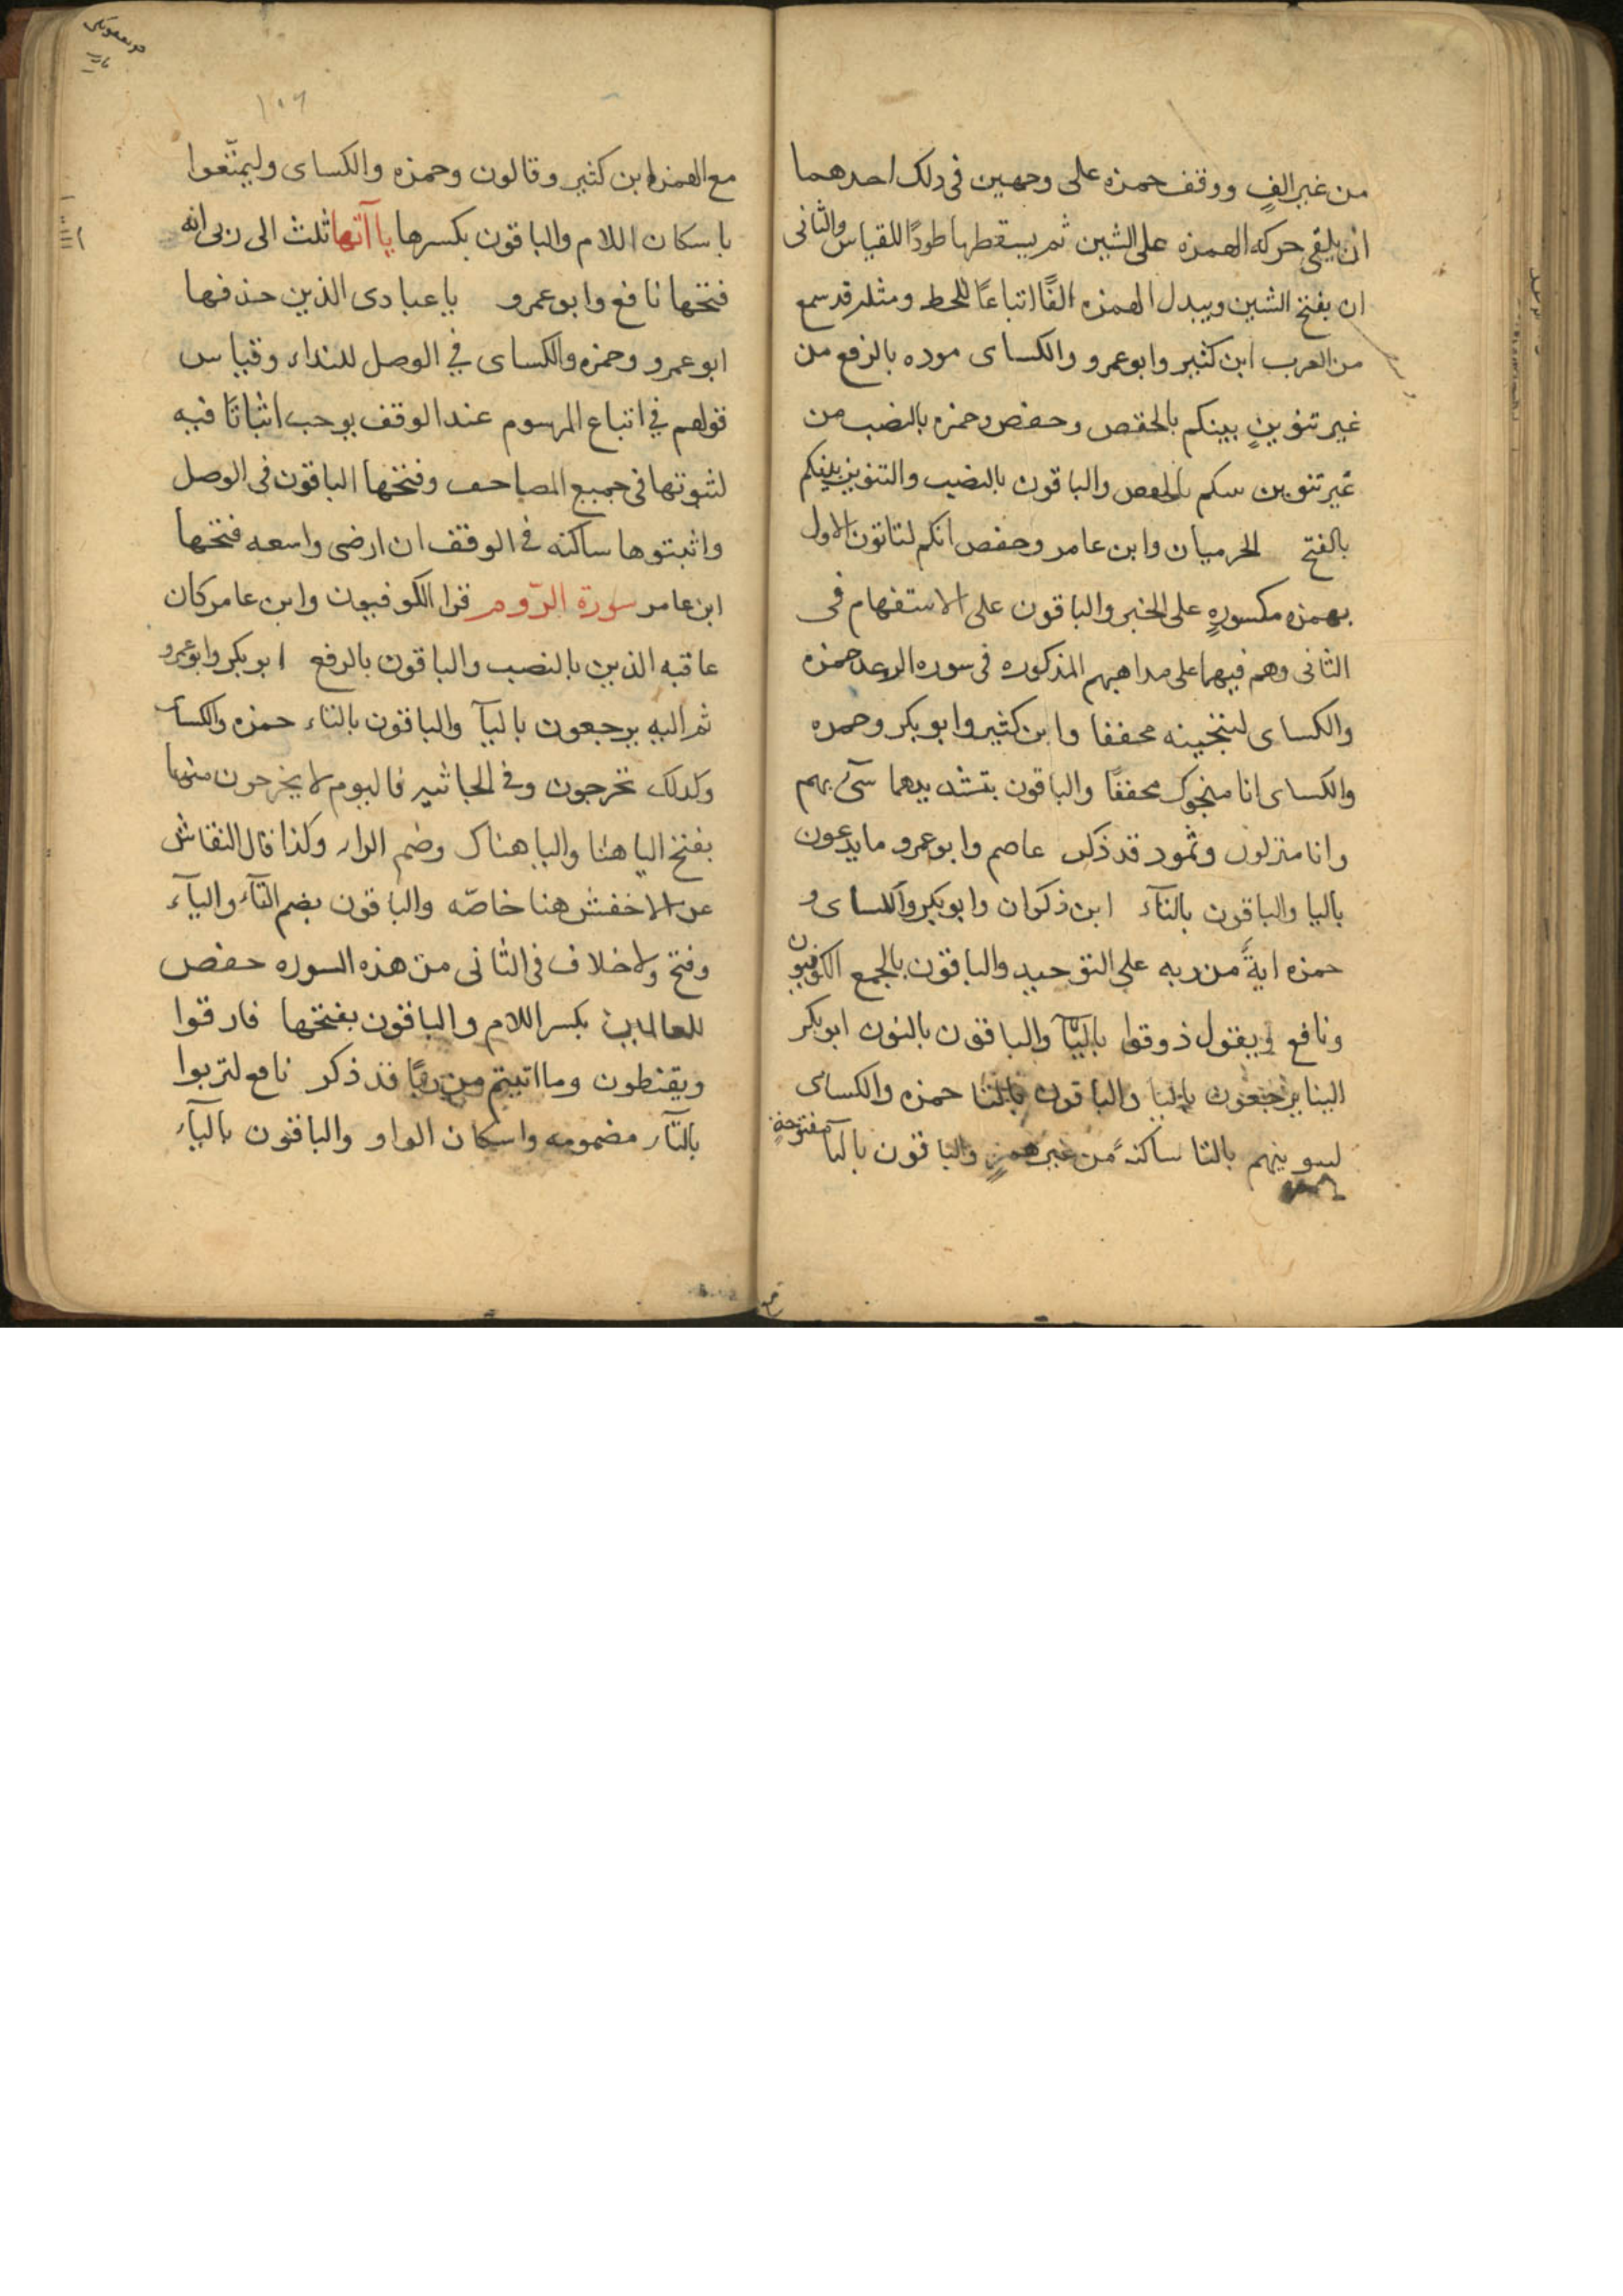 من غير الفٍ ووقف حمزه على وجهين فى ذلك احدهما
ان يلقى حركه الهمزه على الشين ثم يسقطها طردًا للقياس والثانى
ان يفتح الشين ويبدل الهمزه الفًا اتباعًا للخط ومثله قد سمع
من العرب ابن كثير وابو عمرو والكساى موده بالرفع من
غير تنوينٍ بينكم بالخفض وحفص وحمزه بالنصب من
غير تنوين بينكم بالخفض والباقون بالنصب والتنوين بينكم
بالفتح الحرميان وابن عامر وحفص انكم لتاتون الاول
بهمزه مكسورهٍ على الخبر والباقون على الاستفهام فى
الثانى وهم فيهما على مذاهبهم المذكوره فى سوره الرعد حمزه
والكساى لننجينه مخففا وابن كثير وابو بكر وحمزه
والكساى انا منجوك مخففًا والباقون بتشديدهما سىٓ بهم
وانا منزلون وثمود قد ذكر عاصم وابو عمرو ما يدعون
باليا والباقون بالتآء ابن ذكوان وابو بكر والكساى و
حمزه ايةً من ربه على التوحيد والباقون بالجمع الكوفيون
ونافع ويقول ذوقوا باليآ والباقون بالنون ابو بكر
الينا يرجعون باليا والباقون بالتا حمزه والكساى
لنبوينهم بالثا ساكنهً من غير همزٍ والباقون بالبآ مفتوحةٍ
١٠٦
مع الهمزه ابن كثير وقالون وحمزه والكساى وليتمتّعوا
باسكان اللام والباقون بكسرها ياآتها ثلث الى ربى انه
فتحها نافع وابو عمرو يا عبادى الذين حذفها
ابو عمرو وحمزه والكساى فى الوصل للنداء وقياس
قولهم فى اتباع المرسوم عند الوقف يوجب اثباتًا فيه
لثبوتها فى جميع المصاحف وفتحها الباقون فى الوصل
واثبتوها ساكنه فى الوقف ان ارضى واسعه فتحها
ابن عامر سورة الرّوم قرا الكوفيون وابن عامر كان
عاقبه الذين بالنصب والباقون بالرفع ابو بكر وابو عمرو
ثم اليه يرجعون باليآ والباقون بالتاء حمزه والكساى
وكذلك تخرجون وفى الجاثيه فاليوم لا يخرجون منها
بفتح اليا هنا واليا هناك وضم الراء وكذا قال النقاش
عن الاخفش هنا خاصّه والباقون بضم التآء واليآء
وفتح ولا خلاف فى الثانى من هذه السوره حفص
للعالمين بكسر اللام والباقون بفتحها فارقوا
ويقنطون وما اتيتم من ربًا قد ذكر نافع لتربوا
بالتآء مضمومه واسكان الواو والباقون باليآء